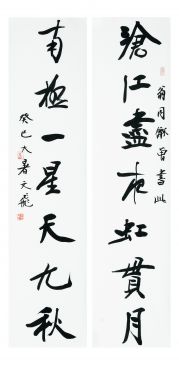 滄江盡夜虹貫月
翁同龢曾書此
南極一星天九秋
癸巳大暑天飛